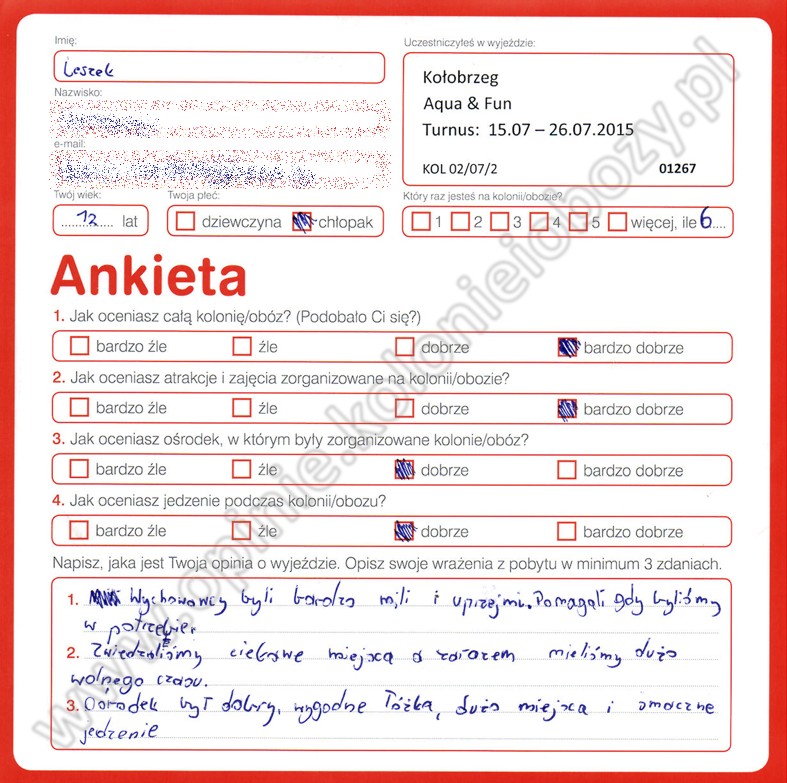 Imię:
Leszek
Uczestniczyłeś w wyjeździe:
Kołobrzeg
Aqua & Fun
Turnus: 15.07 – 26.07.2015
KOL 02/07/2 01267
Nazwisko:
e-mail:
Twój wiek: Twoja płeć: Który raz jesteś na kolonii/obozie?
12 lat dziewczyna chłopak 1 2 3 4 5 więcej, ile 6
Ankieta
1. Jak oceniasz całą kolonię/obóz? (Podobało Ci się?)
bardzo źle źle dobrze bardzo dobrze
2. Jak oceniasz atrakcje i zajęcia zorganizowane na kolonii/obozie?
bardzo źle źle dobrze bardzo dobrze
3. Jak oceniasz ośrodek, w którym były zorganizowane kolonie/obóz?
bardzo źle źle dobrze bardzo dobrze
4. Jak oceniasz jedzenie podczas kolonii/obozu?
bardzo źle źle dobrze bardzo dobrze
Napisz, jaka jest Twoja opinia o wyjeździe. Opisz swoje wrażenia z pobytu w minimum 3 zdaniach.
1. Wychowawcy byli bardzo mili i uprzejmi. Pomagali gdy byliśmy
w potrzebie.
2. Zwiedzaliśmy ciekawe miejsca a zarazem mieliśmy dużo
wolnego czasu.
3. Ośrodek był dobry, wygodne łóżka, dużo miejsca i smaczne
jedzenie
www.opinie.kolonieiobozy.pl